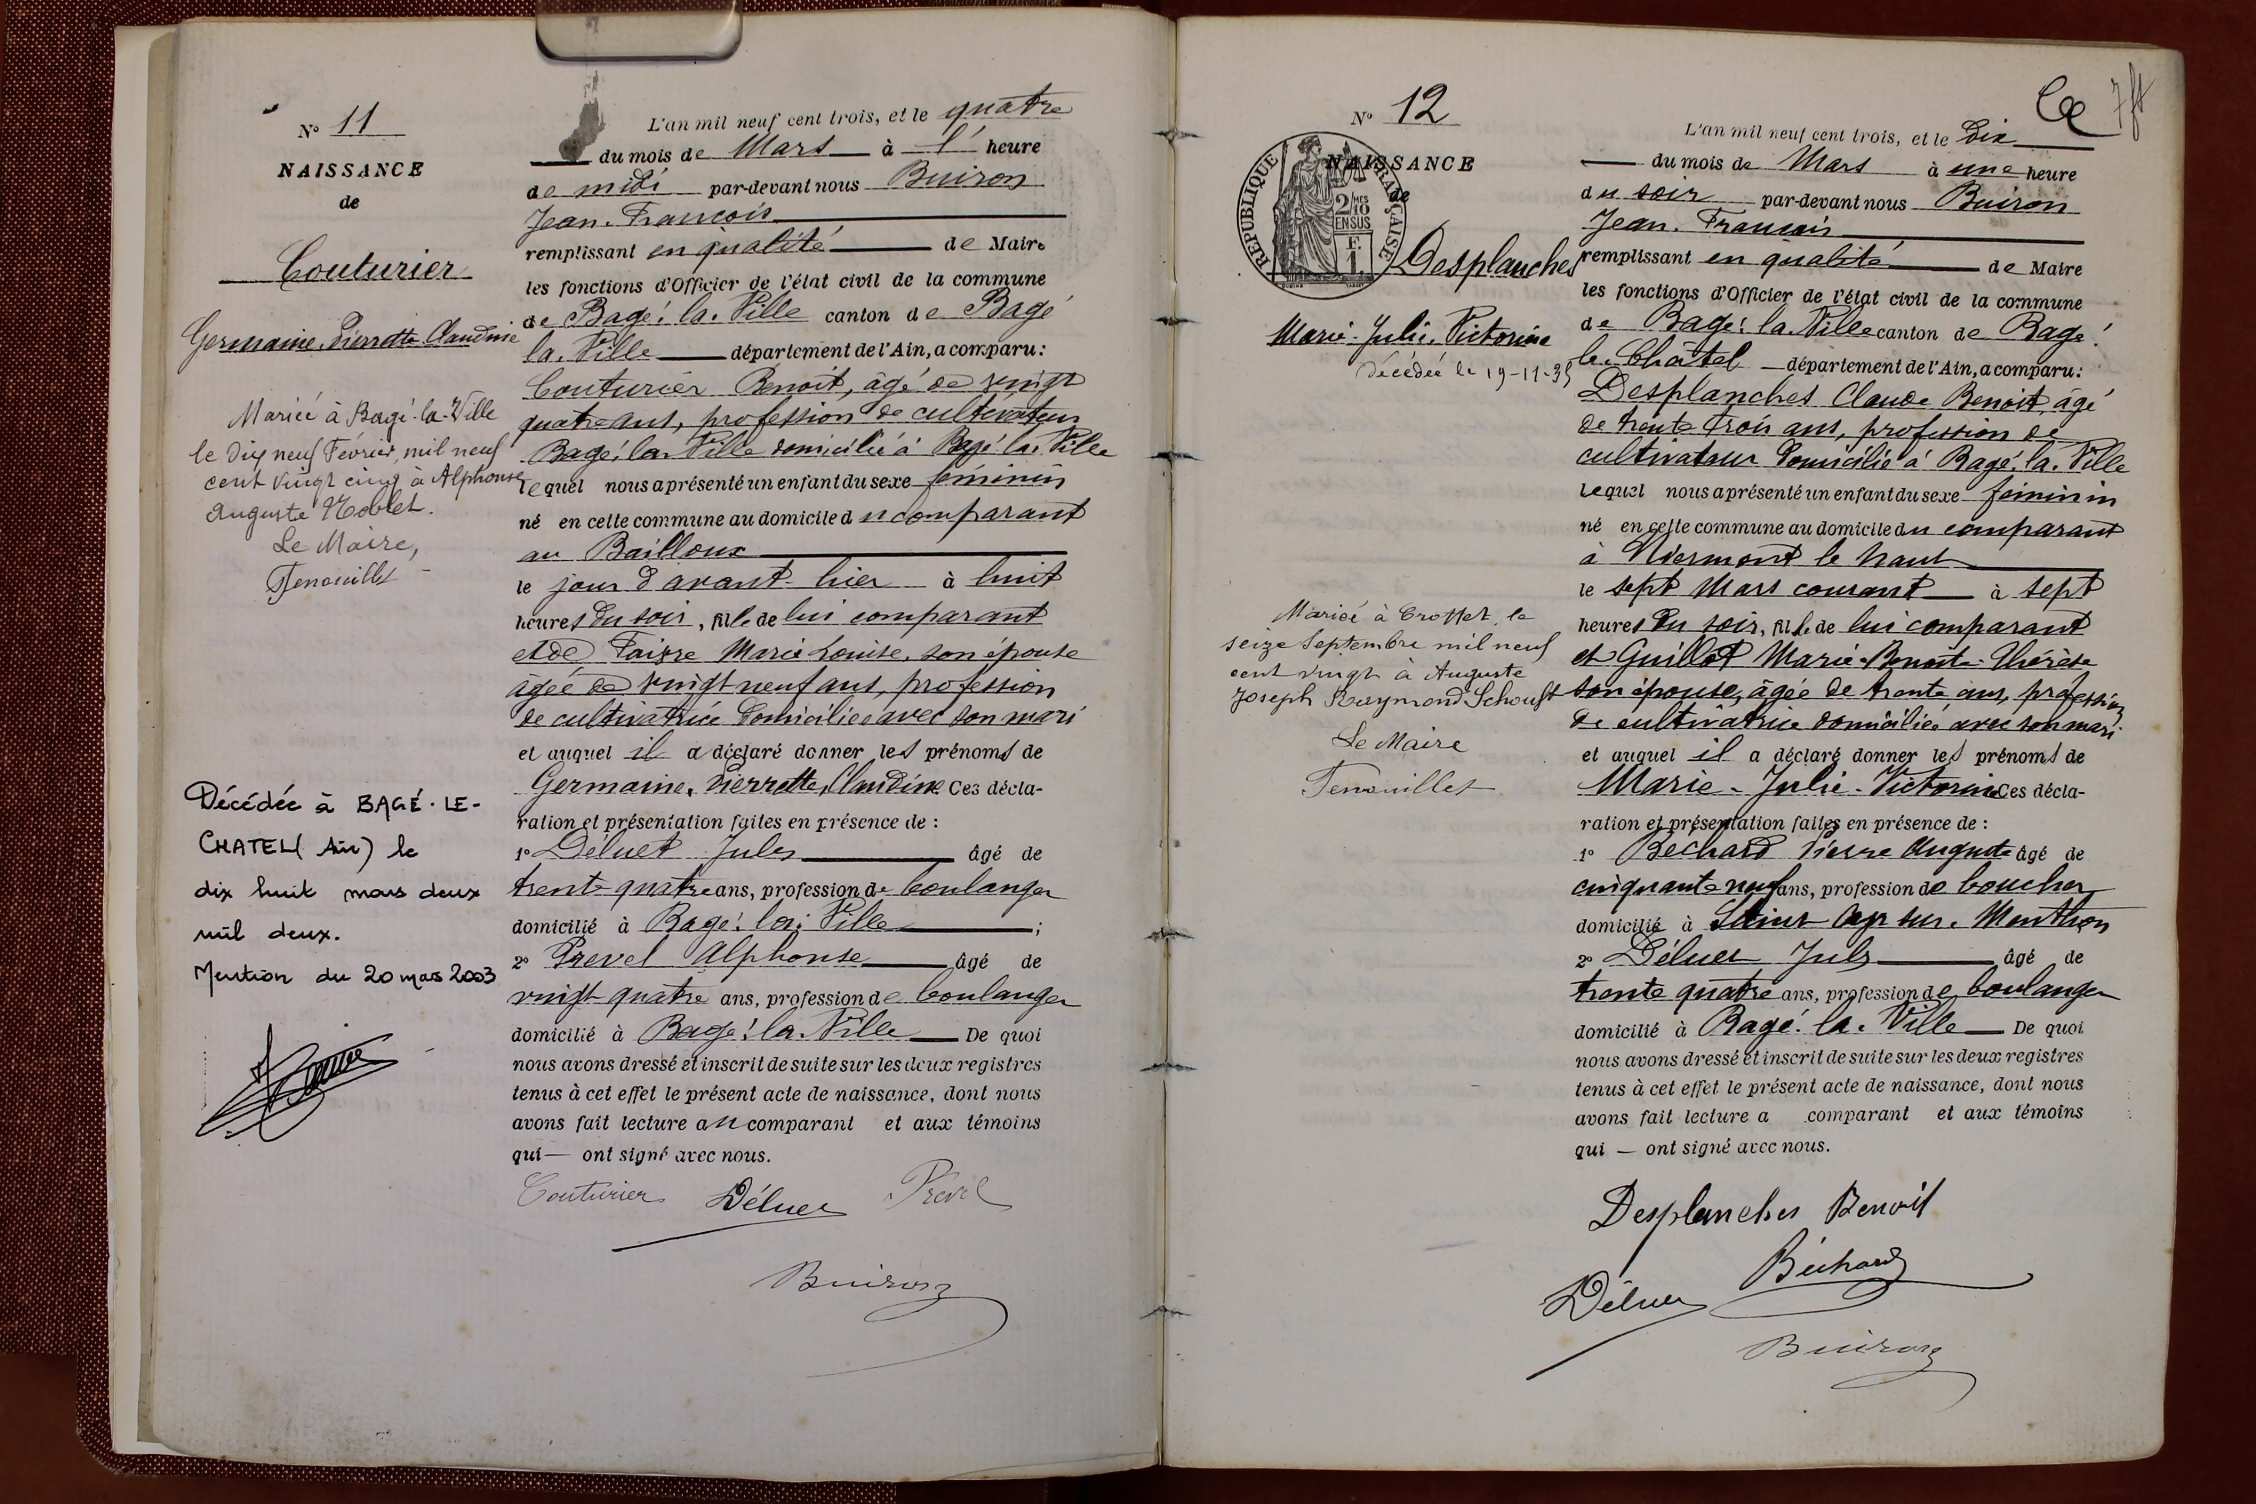 N° 11
NAISSANCE
de
Couturier
Germaine, Pierrette Claudine
Mariée à Bagé-la-Ville
le dix neuf Février, mil neuf
cent vingt cinq à Alphonse
Auguste Noblet.
Le Maire,
Fenouillet
Décédée à BAGÉ-LE-
CHATEL (Ain) le
dix huit mars deux
mil deux.
Mention du 20 mars 2003
L'an mil neuf cent trois, et le quatre
du mois de Mars à 1 heure
de midi par-devant nous Buiron
Jean-François
remplissant en qualité de Maire
les fonctions d'Officier de l'état civil de la commune
de Bagé-la-Ville canton de Bagé
la-Ville département de l'Ain, a comparu:
Couturier Benoit, âgé de vingt
quatre ans, profession de cultivateur
Bagé-la-Ville domicilié à Bagé-la-Ville
lequel nous a présenté un enfant du sexe féminin
né en cette commune au domicile du comparant
au Bailloux
le jour d'avant-hier à huit
heures du soir, fille de lui comparant
et de Faivre Marie Louise, son épouse
âgée de vingt neuf ans, profession
de cultivatrice domiciliée avec son mari
et auquel il a déclaré donner les prénoms de
Germaine, Pierrette, Claudine Ces décla-
ration et présentation faites en présence de :
1° Déluet Jules âgé de
trente-quatre ans, profession de boulanger
domicilié à Bagé-la-Ville ;
2° Prevel Alphonse âgé de
vingt-quatre ans, profession de boulanger
domicilié à Bagé-la-Ville De quoi
nous avons dressé et inscrit de suite sur les deux registres
tenus à cet effet le présent acte de naissance, dont nous
avons fait lecture au comparant et aux témoins
qui — ont signé avec nous.
Couturier Déluet Prével
Buiron
N° 12
NAISSANCE
de
RÉPUBLIQUE FRANÇAISE
2/10
EN SUS
F.
1.
Desplanches
Marie-Julie-Victorine
Décédée le 19-11-35
Mariée à Crottet, le
seize Septembre mil neuf
cent vingt à Auguste
Joseph Raymond
Le Maire
Fenouillet
L'an mil neuf cent trois, et le Dix
du mois de Mars à une heure
du soir par-devant nous Buiron
Jean-François
remplissant en qualité de Maire
les fonctions d'Officier de l'état civil de la commune
de Bagé-la-Ville canton de Bagé-
le-Châtel département de l'Ain, a comparu:
Desplanches Claude Benoit, âgé
de trente trois ans, profession de
cultivateur domicilié à Bagé-la-Ville
lequel nous a présenté un enfant du sexe féminin
né en cette commune au domicile du comparant
à Niermont le haut
le sept Mars courant à sept
heures du soir, fille de lui comparant
et Guillot Marie-Benoîte-Thérèse
son épouse, âgée de trente ans, profession
de cultivatrice domiciliée avec son mari
et auquel il a déclaré donner les prénoms de
Marie-Julie-Victorine Ces décla-
ration et présentation faites en présence de :
1° Béchard Pierre Auguste âgé de
cinquante neuf ans, profession de boucher
domicilié à Saint Cyr sur Menthon
2° Déluet Jules âgé de
trente quatre ans, profession de boulanger
domicilié à Bagé-la-Ville De quoi
nous avons dressé et inscrit de suite sur les deux registres
tenus à cet effet le présent acte de naissance, dont nous
avons fait lecture a comparant et aux témoins
qui — ont signé avec nous.
Desplanches Benoit
Béchard
Déluet
Buiron